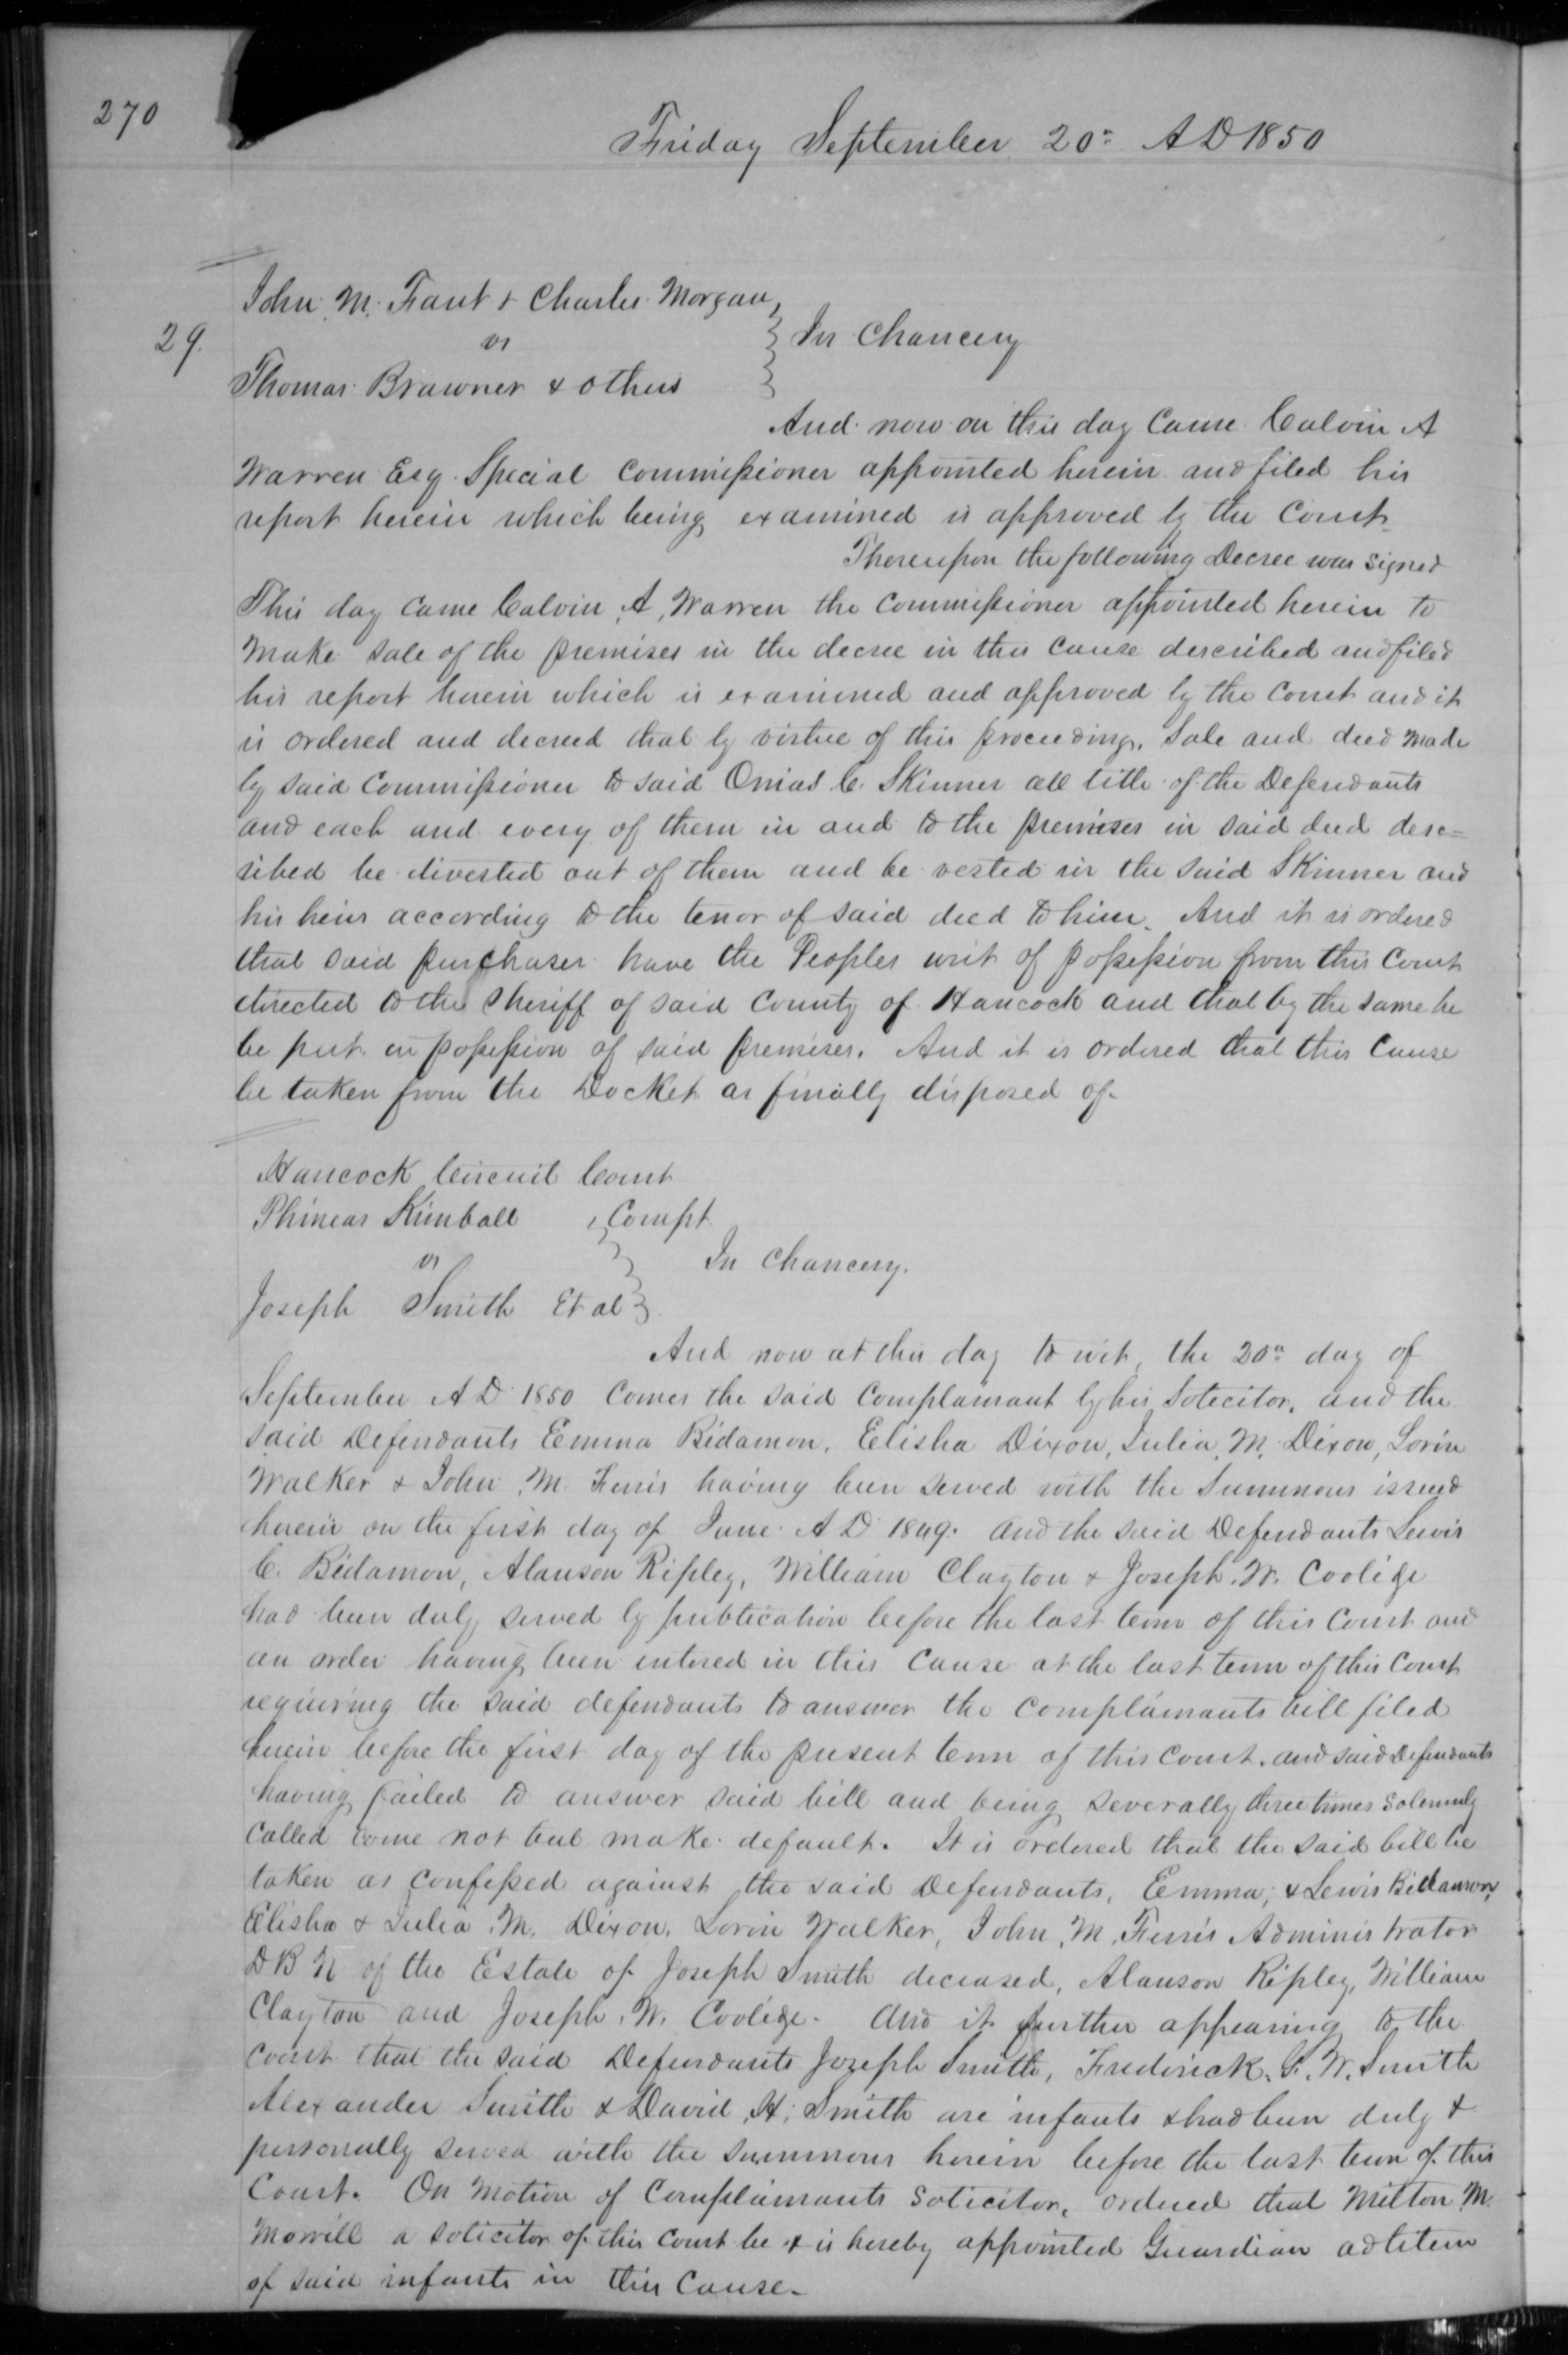 270
Friday September 20th A D 1850
John. M. Faut & Charles Morgan
29. vs } In Chancery
Thomas Brawner & others
And now on this day came Calvin A
Warren Esq. Special Commissioner appointed herein and filed his
report herein which being examined is approved by the Court.
Thereupon the following Decree was signed
This day came Calvin A, Warren the Commissioner appointed herein to
make sale of the premises in the decree in this cause described and filed
his report herein which is examined and approved by the Court and it
is ordered and decreed that by virtue of this proceeding. Sale and deed made
by said Commissioner to said Onias C. Skinner all title of the Defendants
and each and every of them in and to the premises in said deed desc=
ribed be divested out of them and be vested in the said Skinner and
his heirs according to the tenor of said deed to him. And it is ordered
that said purchaser have the Peoples writ of possession from this Court
directed to the Sheriff of said County of Hancock and that by the same he
be put in possession of said premises. And it is ordered that this Cause
be taken from the Docket as finally disposed of.
Hancock Circuit Court
Phineas Kimball } Compt
vs } In Chancery.
Joseph Smith Et al }
And now at this day to wit, the 20th day of
September A D 1850 Comes the said Complainant by his Solicitor, and the
said Defendants Emma Bidamon, Elisha Dixon, Julia, M, Dixon, Lorin
Walker & John M. Ferris having been served with the Summons issued
herein on the first day of June A D 1849. and the said Defendants Lewis
C. Bidamon, Alanson Ripley, William Clayton & Joseph. W. Coolige
had been duly served by publication before the last term of this Court and
an order having been entered in this Cause at the last term of this Court
requiring the said defendants to answer the Complainants bill filed
herein before the first day of the present term of this Court. and said Defendants
having failed to answer said bill and being severally three times solemnly
called come not but make default. It is ordered that the said bill be
taken as confessed against the said Defendants, Emma, & Lewis Bidamon,
Elisha & Julia. M. Dixon. Lorin Walker, John, M, Ferris Administrator
D B N of the Estate of Joseph Smith deceased, Alanson Ripley, William
Clayton and Joseph. W. Coolige. And it further appearing to the
court that the said Defendants Joseph Smith, Frederick. G. W. Smith
Alexander Smith & David, H; Smith are infants & had been duly &
personally served with the summons herein before the last term of this
Court. On Motion of Complainants Solicitor, ordered that Milton M.
Morrill a Solicitor of this Court be & is hereby appointed Guardian ad litem
of said infants in this Cause.